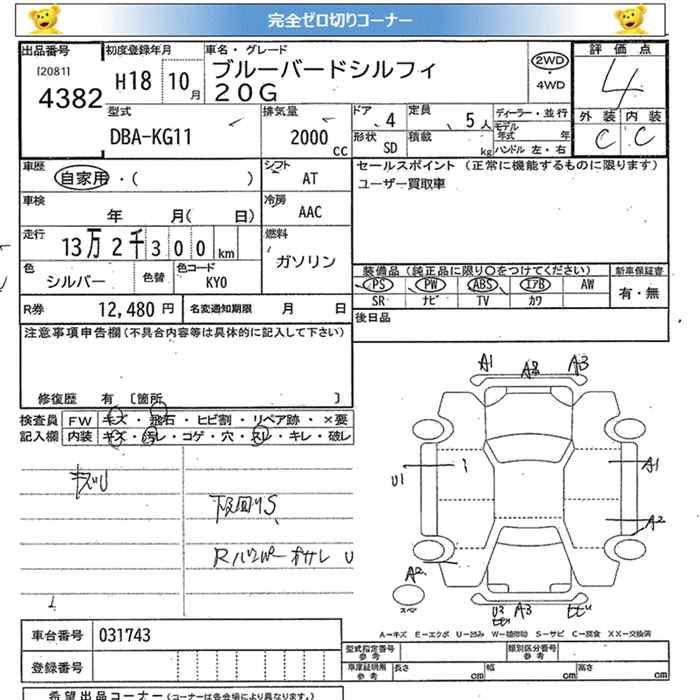 完全ゼロ切りコーナー
出品番号 初度登録年月 車名・グレード 評価点
[2081] 4382 H18 10月 ブルーバードシルフィ 2WD・4WD 4
20G
型式 排気量 ドア 4 定員 5人 ディーラー・並行 外装 内装
DBA-KG11 2000cc 形状 SD 積載 kg モデル年式 年 C C
ハンドル 左・右
車歴 シフト セールスポイント (正常に機能するものに限ります)
自家用・( ) AT ユーザー買取車
車検 冷房
年 月( 日) AAC
走行 燃料
13万2千300km ガソリン
色 色替 色コード 装備品(純正品に限り○をつけてください) 新車保証書
シルバー KY0 PS PW ABS エアB AW 有・無
SR ナビ TV カワ
R券 12,480円 名変通知期限 月 日 後日品
注意事項申告欄(不具合内容等は具体的に記入して下さい)
修復歴 有 [箇所 ]
検査員 FW キズ・飛石・ヒビ割・リペア跡・×要
記入欄 内装 キズ・汚レ・コゲ・穴・スレ・キレ・破レ
A1 A2 A3
U1 A1
A2
下回りS
A2
スペ
U3 A3
A-キズ E-エクボ U-凹み W-補修跡 S-サビ C-腐食 XX-交換済
車台番号 031743
型式指定番号 参考 類別区分番号 参考
登録番号 車庫証明用 参考 長さ cm 幅 cm 高さ cm
希望出品コーナー(コーナーは各会場により異なります。)